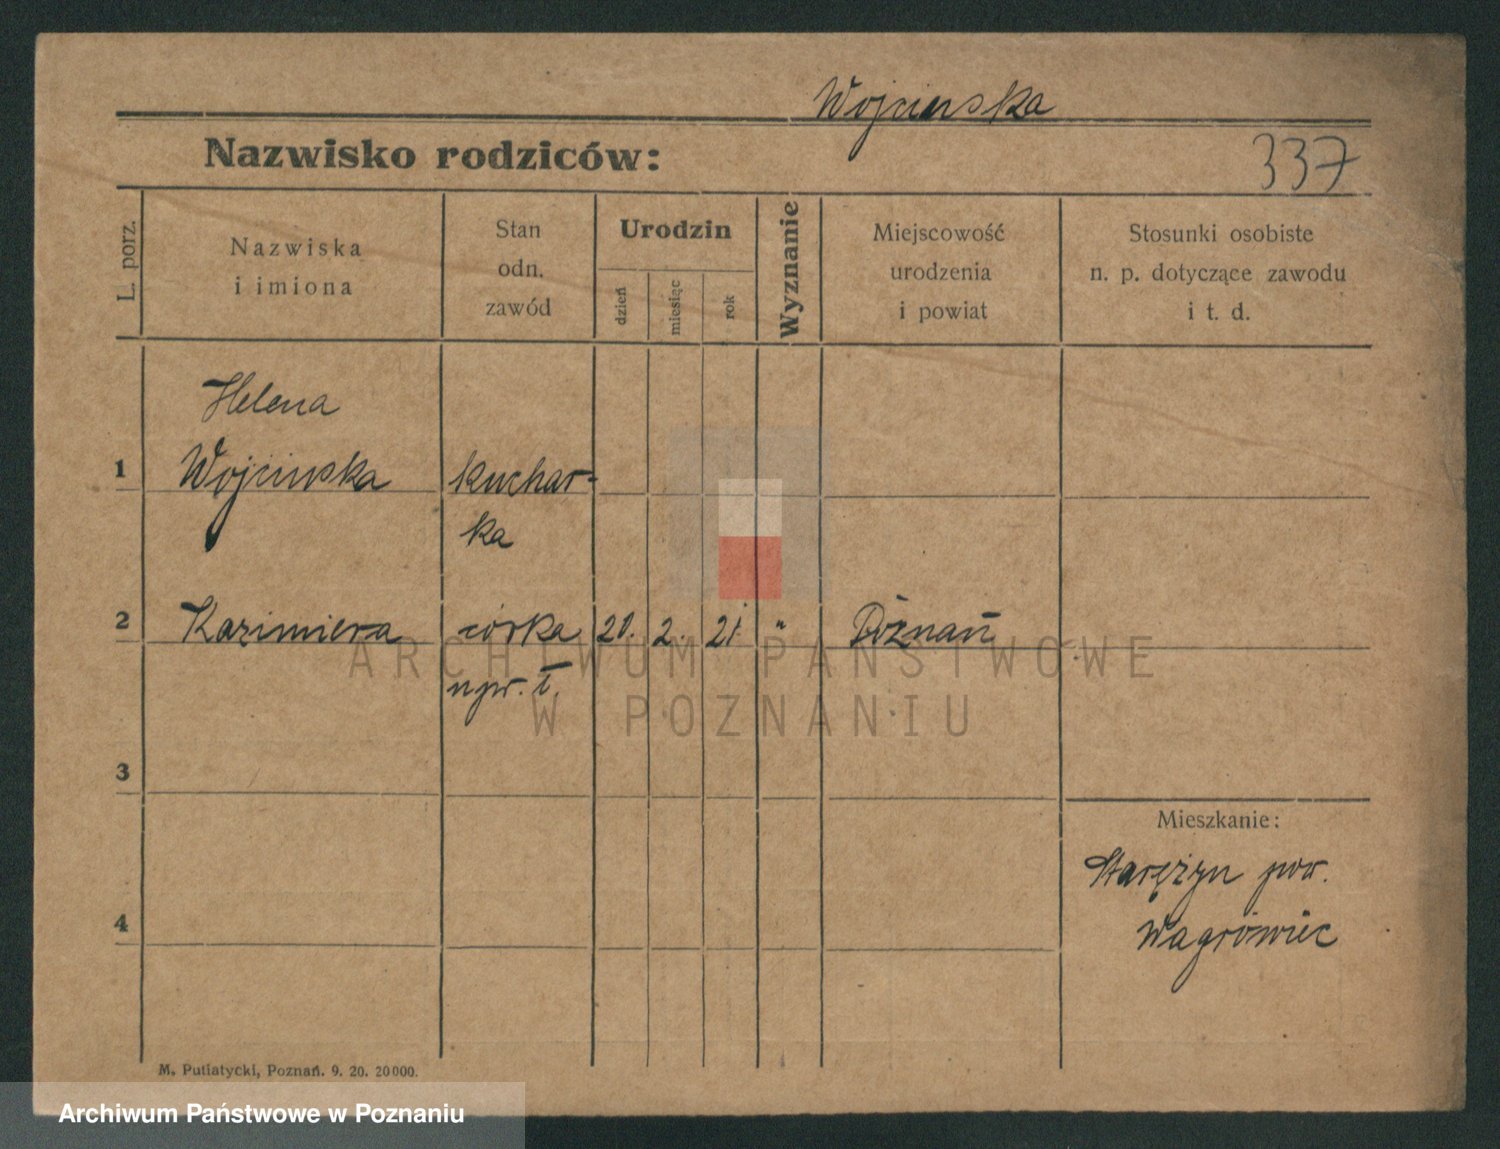 Wojcinska
Nazwisko rodziców:
337
L. porz.
Nazwiska
i imiona
Stan
odn.
zawód
Urodzin
dzień
miesiąc
rok
Wyznanie
Miejscowość
urodzenia
i powiat
Stosunki osobiste
n. p. dotyczące zawodu
i t. d.
Helena
1 Wojcinska kuchar-
ka
2 Kazimiera córka 2. 21. " Poznań
npr. I.
ARCHIWUM PAŃSTWOWE
W POZNANIU
3
Mieszkanie:
Starężyn pow.
4
Wagrówiec
M. Putiatycki, Poznań. 9. 20. 20000.
Archiwum Państwowe w Poznaniu